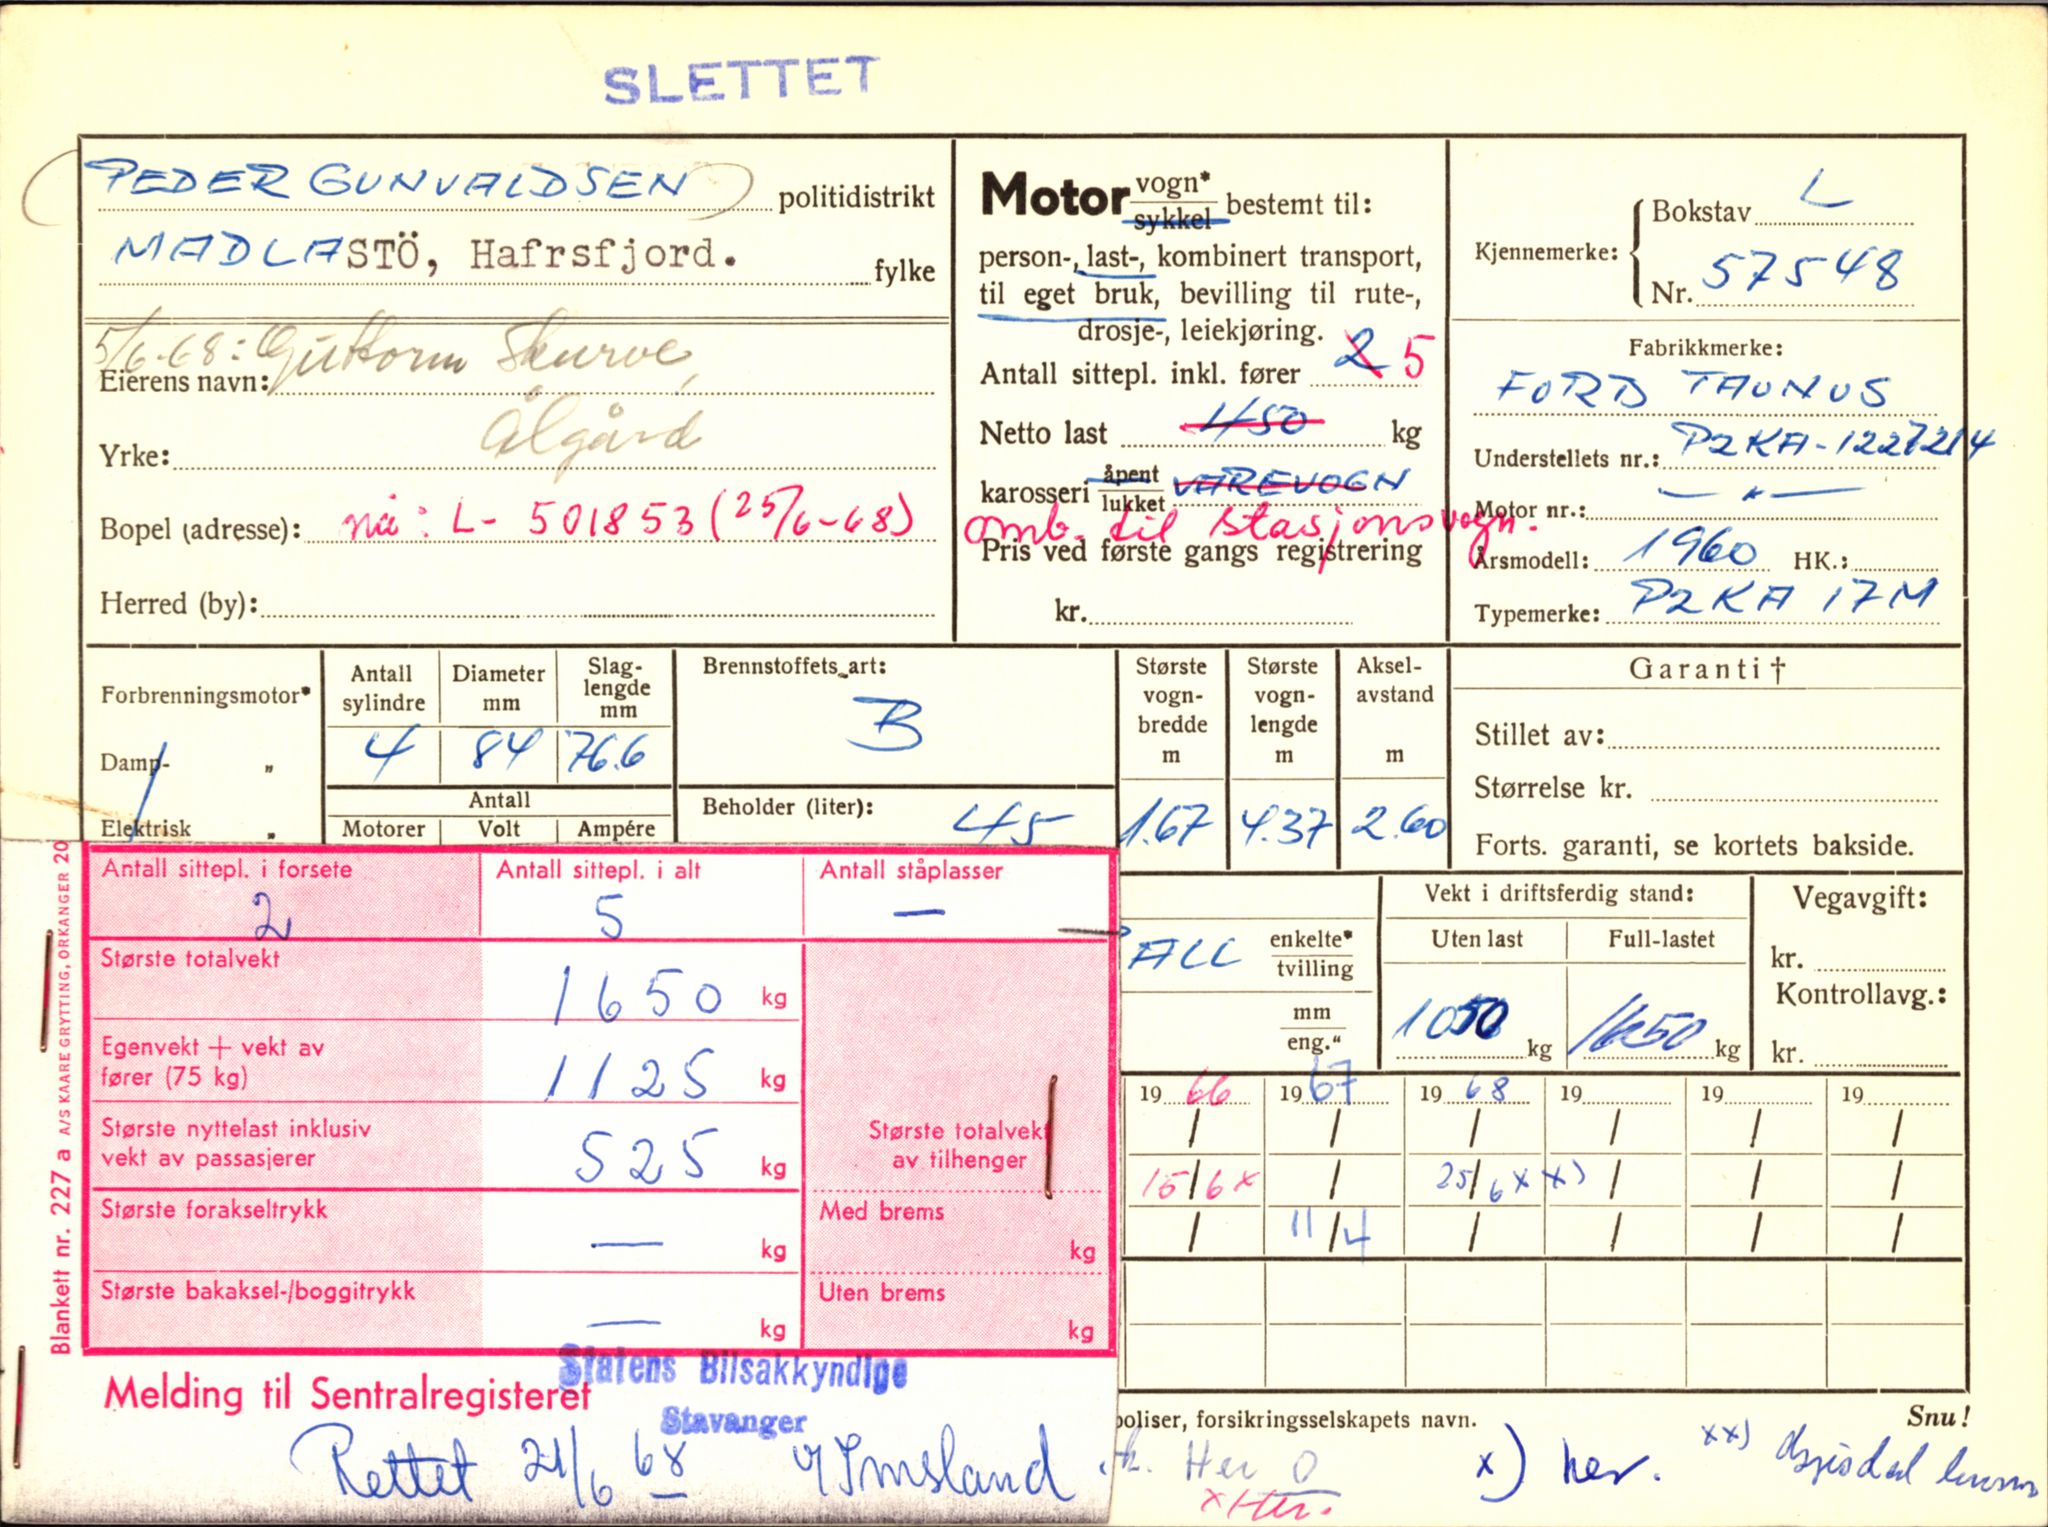 SLETTET
PEDER GUNVALDSEN politidistrikt
MADLASTÖ, Hafrsfjord. fylke
5/6-68: Guttorm Skurve,
Eierens navn:
Ålgård
Yrke:
Bopel (adresse): nå: L- 501853 (25/6-68)
Herred (by):
Motor vogn* sykkel bestemt til:
person-, last-, kombinert transport,
til eget bruk, bevilling til rute-,
drosje-, leiekjøring.
Antall sittepl. inkl. fører 2 5
Netto last 450 kg
karosseri åpent lukket VAREVOGN
omb. til stasjonsvogn.
Pris ved første gangs registrering
kr.
Kjennemerke: Bokstav L
Nr. 57548
Fabrikkmerke:
FORD TAUNUS
Understellets nr.: P2KA-1227214
Motor nr.: — " —
Årsmodell: 1960 HK.:
Typemerke: P2KA 17M
Forbrenningsmotor*
Damp- „
Elektrisk „
Antall sylindre 4
Diameter mm 84
Slag-lengde mm 76.6
Antall
Motorer Volt Ampére
Brennstoffets art:
B
Beholder (liter): 45
Største vogn-bredde m 1.67
Største vogn-lengde m 4.37
Aksel-avstand m 2.60
Garanti †
Stillet av:
Størrelse kr.
Forts. garanti, se kortets bakside.
Blankett nr. 227 a A/S KAARE GRYTTING, ORKANGER 20
Antall sittepl. i forsete 2
Antall sittepl. i alt 5
Antall ståplasser —
Største totalvekt 1650 kg
Egenvekt + vekt av
fører (75 kg) 1125 kg
Største nyttelast inklusiv
vekt av passasjerer 525 kg
Største forakseltrykk — kg
Største bakaksel-/boggitrykk — kg
Største totalvekt
av tilhenger
Med brems kg
Uten brems kg
Melding til Sentralregisteret
Statens Bilsakkyndige
Stavanger
Rettet 21/6 68 Imsland
ALL enkelte* tvilling
mm
eng."
Vekt i driftsferdig stand:
Uten last Full-lastet
1050 kg 1650 kg
Vegavgift:
kr.
Kontrollavg.:
kr.
19 66 19 67 19 68 19 19 19
/ / / / / /
15/6 x / 25/6 x x) / / /
/ 11/4 / / / /
poliser, forsikringsselskapets navn. Snu!
Her 0
x Her.
x) her.
xx)